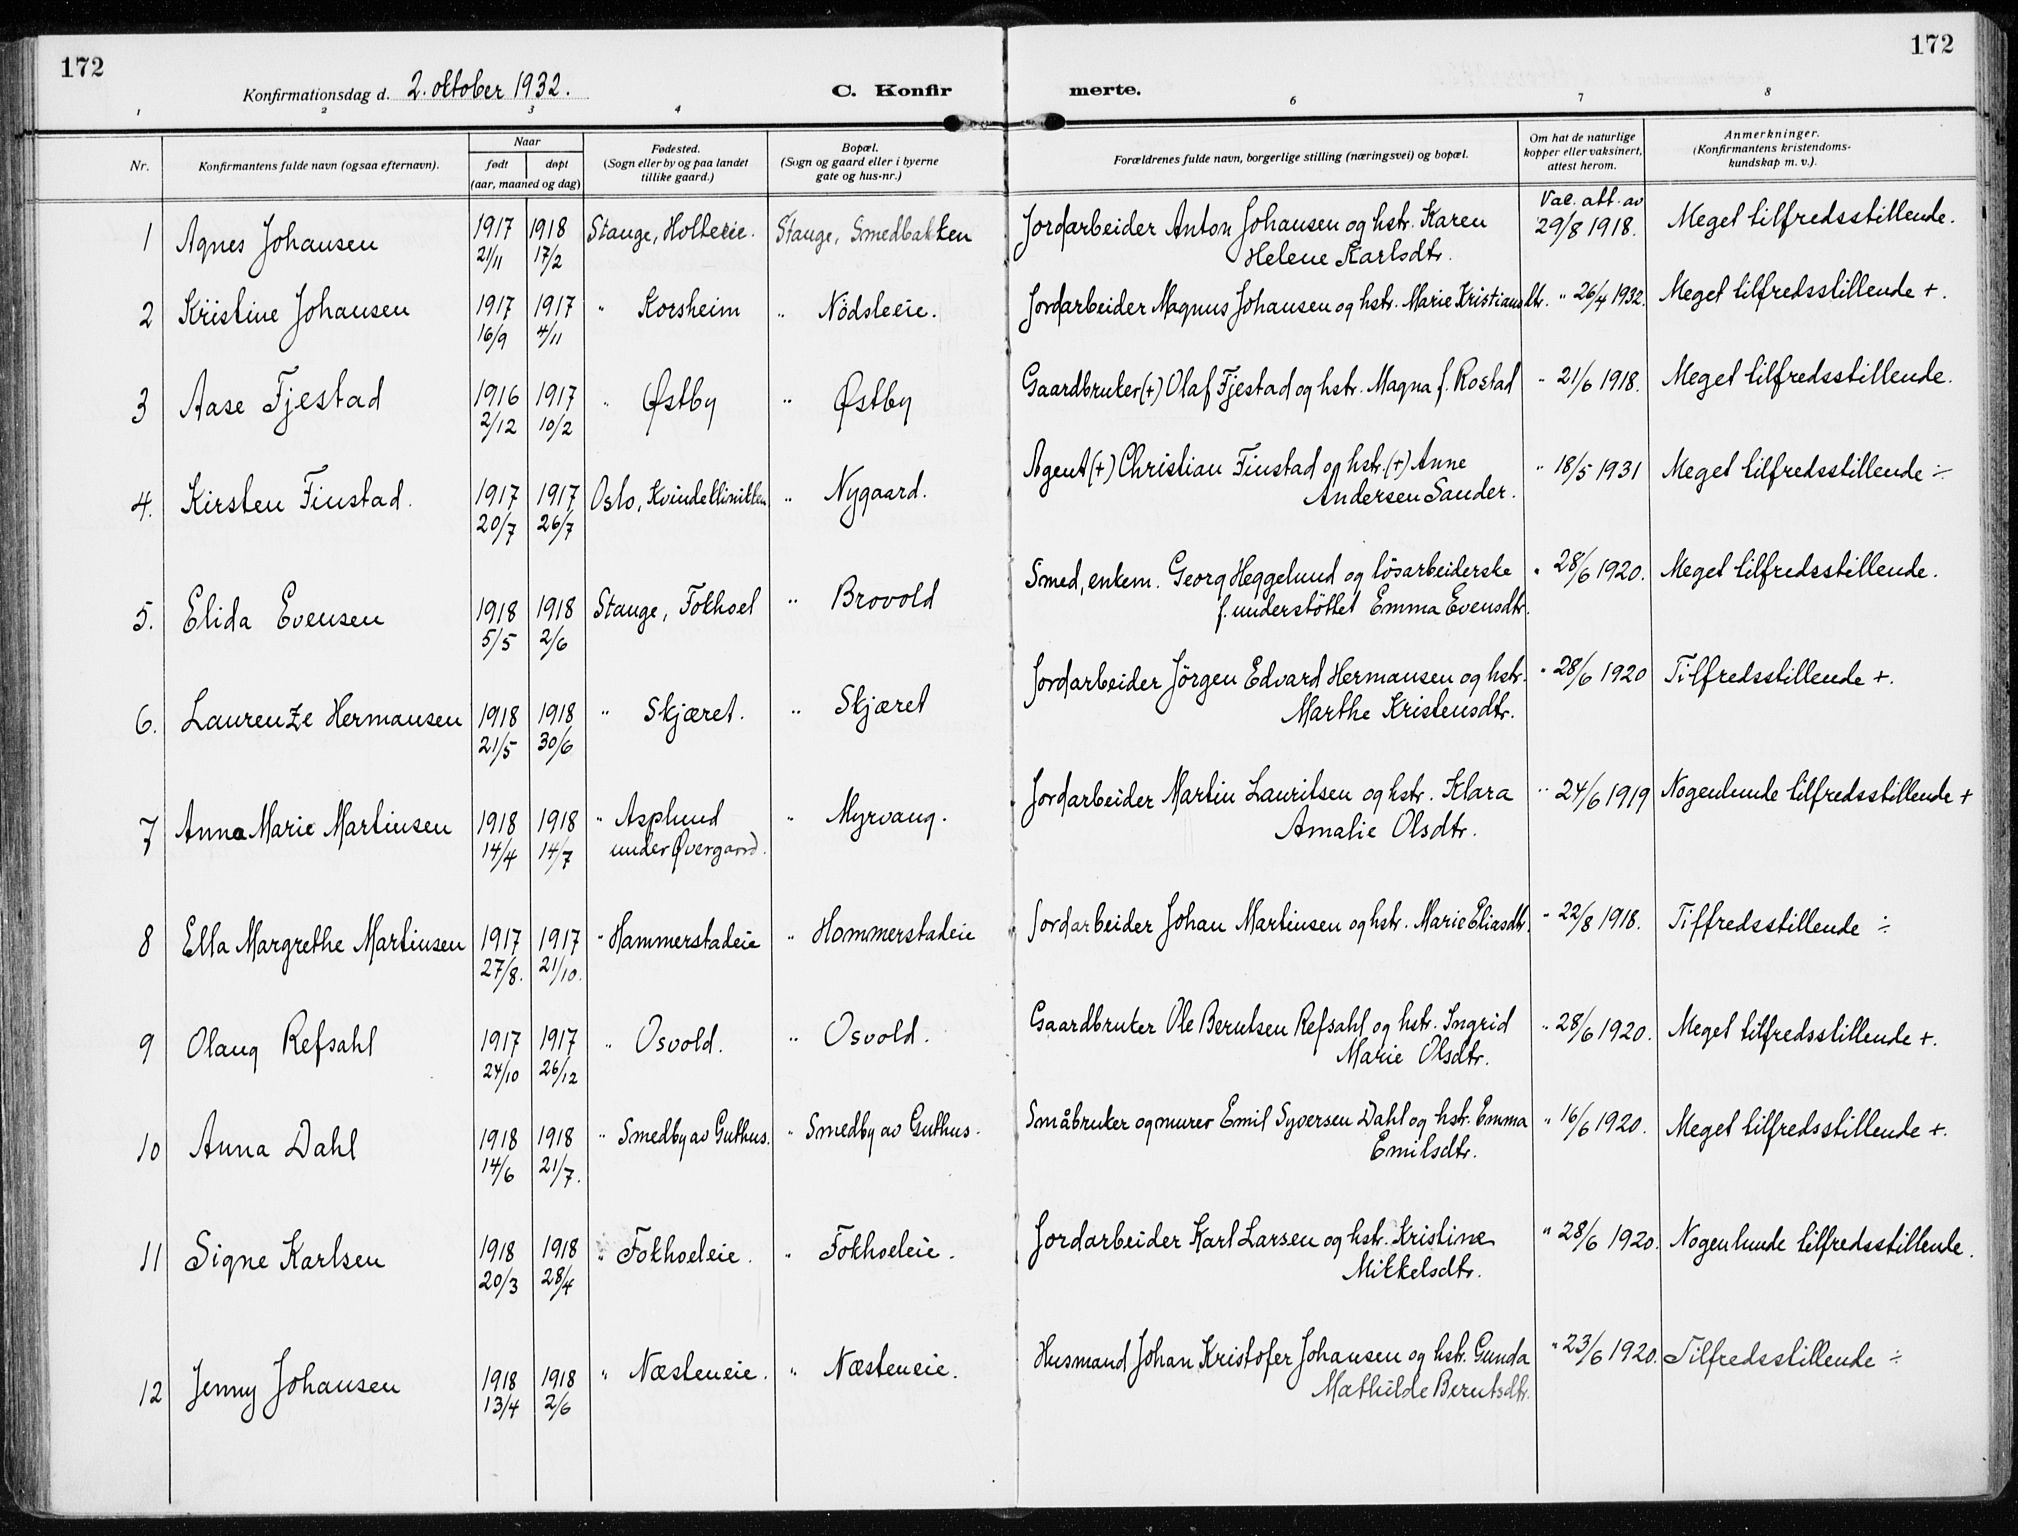 172
172
Konfirmationsdag d. 2. oktober 1932.
C. Konfir
merte.
1 2 3 4 6 7 8
Nr.
Konfirmantens fulde navn (ogsaa efternavn).
Naar
født
døpt
(aar, maaned og dag)
Fødested.
(Sogn eller by og paa landet
tillike gaard.)
Bopæl.
(Sogn og gaard eller i byerne
gate og hus-nr.)
Forældrenes fulde navn, borgerlige stilling (næringsvei) og bopæl.
Om hat de naturlige
kopper eller vaksinert,
attest herom.
Anmerkninger.
(Konfirmantens kristendoms-
kundskap m. v.).
Vac. att. av
1 Agnes Johansen 1917 1918 Stange, Holteeie. Stange, Smedbakken Jordarbeider Anton Johansen og hstr. Karen 29/8 1918. Meget tilfredsstillende.
21/11 17/2 Helene Karlsdtr.
2 Kristine Johansen 1917 1917 " Korsheim " Nödsleeie. Jordarbeider Magnus Johansen og hstr. Marie Kristiansdtr. " 26/4 1932. Meget tilfredsstillende +.
16/9 4/11
3 Aase Fjestad 1916 1917 " Østby " Østby Gaardbruker (+) Olaf Fjestad og hstr. Magna f. Rostad " 21/6 1918. Meget tilfredsstillende.
2/12 10/2
4. Kirsten Finstad. 1917 1917 Oslo, Kvindeklinikken " Nygaard. Agent (+) Christian Finstad og hstr. (+) Anne " 18/5 1931 Meget tilfredsstillende ÷
20/7 26/7 Andersen Sander.
5. Elida Evensen 1918 1918 Stange, Fokhoel " Brovold Smed, enkem. Georg Heggelund og lösarbeiderske " 28/6 1920. Meget tilfredsstillende.
5/5 2/6 f. understöttet Emma Evensdtr.
6. Laurenze Hermansen 1918 1918 " Skjæret. " Skjæret Jordarbeider Jörgen Edvard Hermansen og hstr. " 28/6 1920 Tilfredsstillende +.
21/5 30/6 Marthe Kristensdtr.
7 Anna Marie Martinsen 1918 1918 " Asplund " Myrvang. Jordarbeider Martin Lauritsen og hstr. Klara " 24/6 1919 Nogenlunde tilfredsstillende +
14/4 14/7 under Øvergaard. Amalie Olsdtr.
8 Ella Margrethe Martinsen 1917 1917 " Hammerstadeie " Hommerstadeie Jordarbeider Johan Martinsen og hstr. Marie Eliasdtr. " 22/8 1918. Tilfredsstillende ÷
27/8. 21/10.
9 Olaug Refsahl 1917 1917 " Osvold. " Osvold. Gaardbruker Ole Berntsen Refsahl og hstr. Ingrid " 28/6 1920. Meget tilfredsstillende +.
24/10 26/12 Marie Olsdtr.
10 Anna Dahl 1918 1918 " Smedby av Guthus. " Smedby av Guthus. Småbruker og murer Emil Syversen Dahl og hstr. Emma " 16/6 1920. Meget tilfredsstillende +.
14/6 21/7. Emilsdtr.
11 Signe Karlsen 1918 1918 " Fokhoeleie. " Fokhoeleie. Jordarbeider Karl Larsen og hstr. Kristine " 28/6 1920. Nogenlunde tilfredsstillende.
20/3 28/4 Mikkelsdtr.
12 Jenny Johansen 1918 1918 " Næsteneie. " Næsteneie. Husmand Johan Kristofer Johansen og hstr. Gunda " 23/6 1920. Tilfredsstillende ÷
13/4 2/6 Mathilde Berntsdtr.